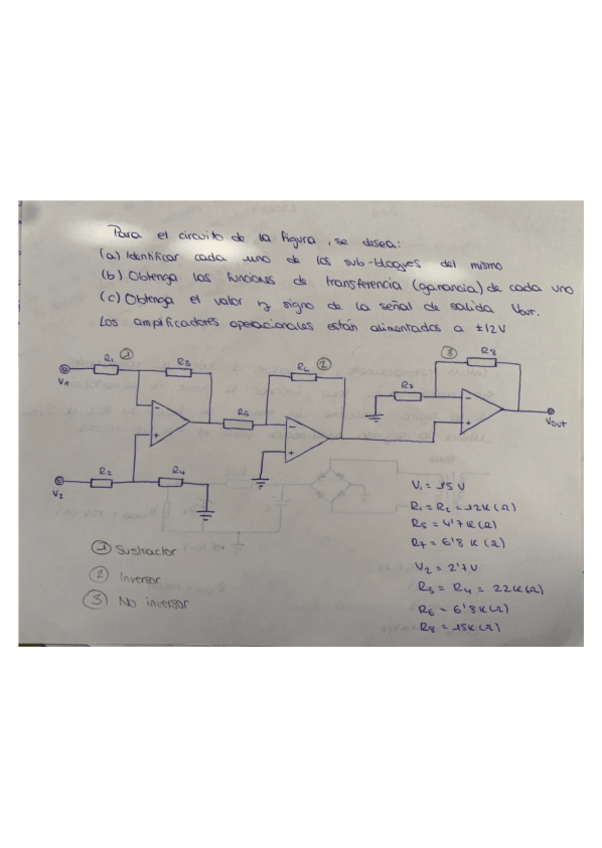 Para el circuito de la figura, se desea:
(a) Identificar cada uno de los sub-bloques del mismo
(b) Obtenga las funciones de transferencia (ganancia) de cada uno
(c) Obtenga el valor y signo de la señal de salida Vout.
Los amplificadores operacionales están alimentados a ±12V
R1 1 R3 R6 2 3 R8
V1
R5 R7
- + - + - +
VOUT
R2 R4
V2
V1 = 15 V
R1 = R2 = 12K(Ω)
R5 = 4'7K(Ω)
R7 = 6'8 K(Ω)
V2 = 2'7V
R3 = R4 = 22K(Ω)
R6 = 6'8K(Ω)
R8 = 15K(Ω)
1 Sustractor
2 Inversor
3 No inversor